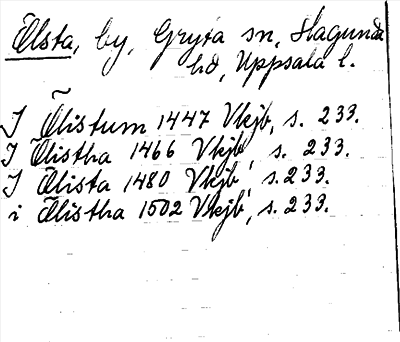 Ölsta, by, Gryta sn, Hagunda
hd, Uppsala l.
I Ölistum 1447 Vkjb, s. 233.
I Ölistha 1466 Vkjb, s. 233.
I Ölista 1480 Vkjb, s. 233.
i Ölistha 1502 Vkjb, s. 233.